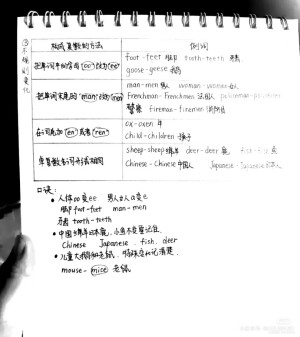 ③不规则变化
构成复数的方法 例词
把单词中的字母(oo)改成(ee) foot-feet 脚 tooth-teeth 牙齿
goose-geese 鹅
把单词末尾的(man)改成(men) man-men 男人 woman-women 女人
Frenchman-Frenchmen 法国人 policeman-policemen
警察 fireman-firemen 消防员
在词尾加(en)或者(ren) ox-oxen 牛
child-children 孩子
单复数名词形式相同 sheep-sheep 绵羊 deer-deer 鹿 fish-fish 鱼
Chinese-Chinese 中国人 Japanese-Japanese 日本人
口诀:
• 人体oo变ee 男人女人a变e
脚 foot-feet man-men
牙齿 tooth-teeth
• 中国绵羊日本鹿,小鱼不变
Chinese Japanese . fish. deer
• 儿童大鹅和老鼠,特殊变化记清楚
mouse-mice 老鼠